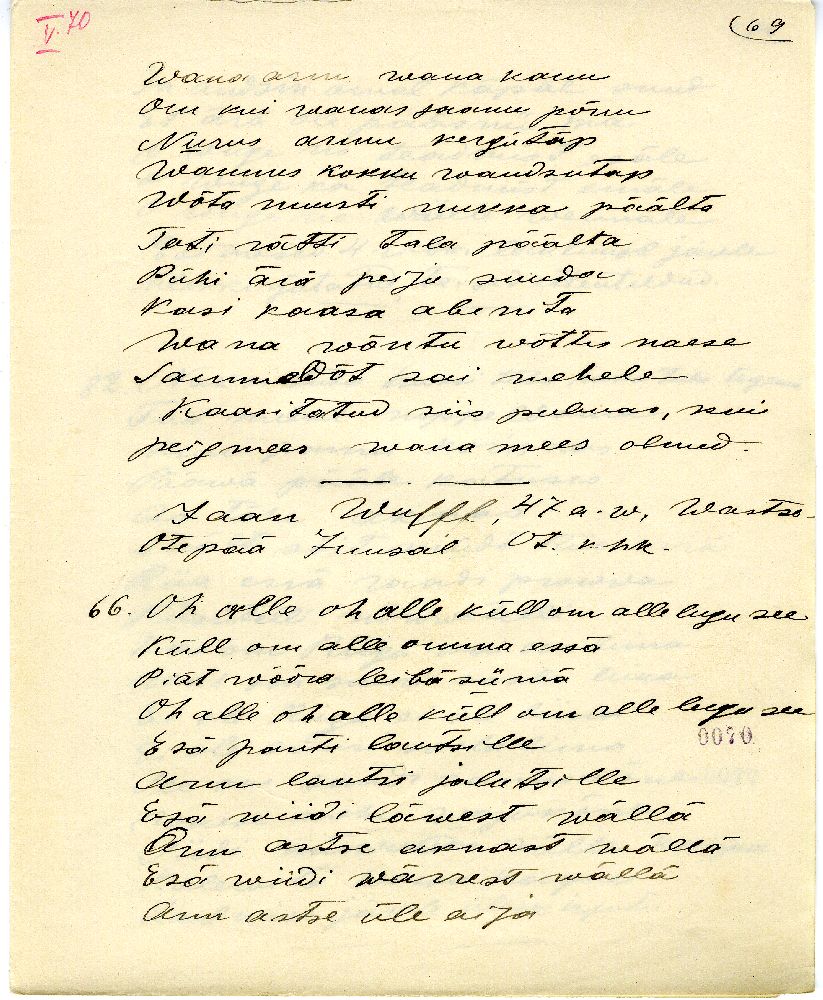 V.70
69
Wana arm wana kann
Om kui wanas jaanu põnu
Nurus armu kergütap
Wammus kokku wandsutap
Wõta nuusti nukka päälta
Tati rätti tala päälta
Pühi ärä peiju suuda
Kasi kaasa abenita
Wana wõntu wõttis naese
Sammeldõt sai mehele
Kaasitatud siis pulmas, kui
peigmees wana mees olnud.
Jaan Wulff, 47 a. w, Wastse-
Otepää Juusal Ot. khk.
66. Oh alle oh alle küll om alle lugu see
Küll om alle omma essä
Piät wõõra leibä sümä
Oh alle oh alle küll om alle lugu see
0070
Esä panti lautsille
Arm lautsi jalutsille
Esä wiidi läwest wällä
Arm astse aknast wällä
Esä wiidi wärrest wällä
Arm astse üle aija